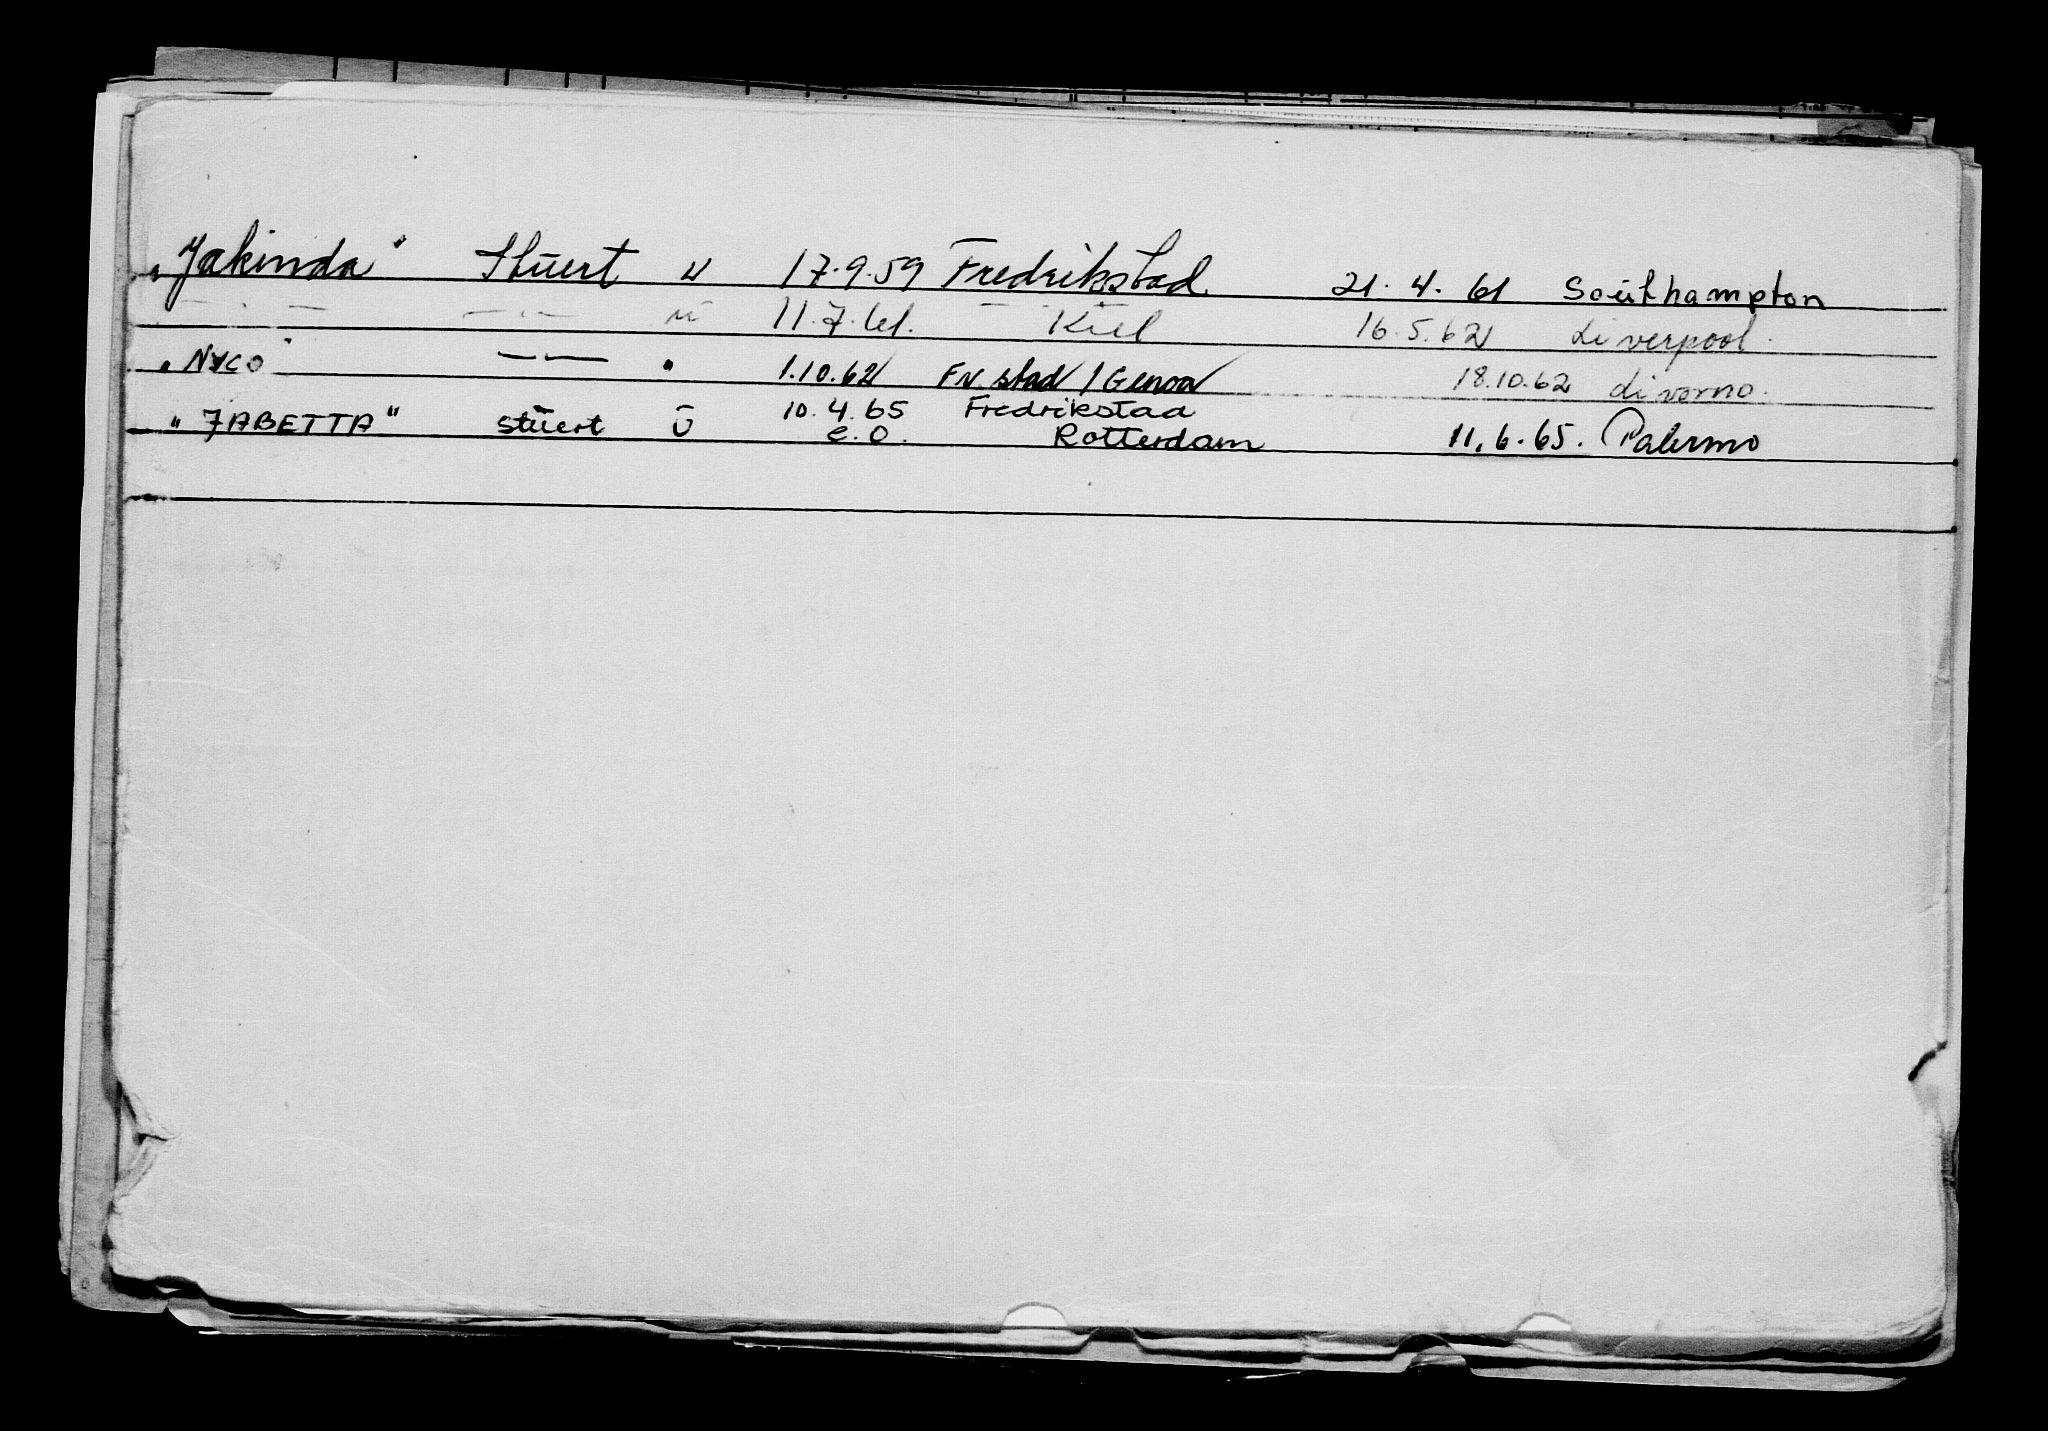 "Jakinda" Stuert u 17.9.59 Fredrikstad 21.4.61 Southampton
— " — — " — u 11.7.61. Kiel 16.5.62 Liverpool.
"NYCO" — — " 1.10.62 Fr.stad / Genoa 18.10.62 Livorno.
"JABETTA" stuert u 10.4.65 Fredrikstad
e.o. Rotterdam 11.6.65. Palermo